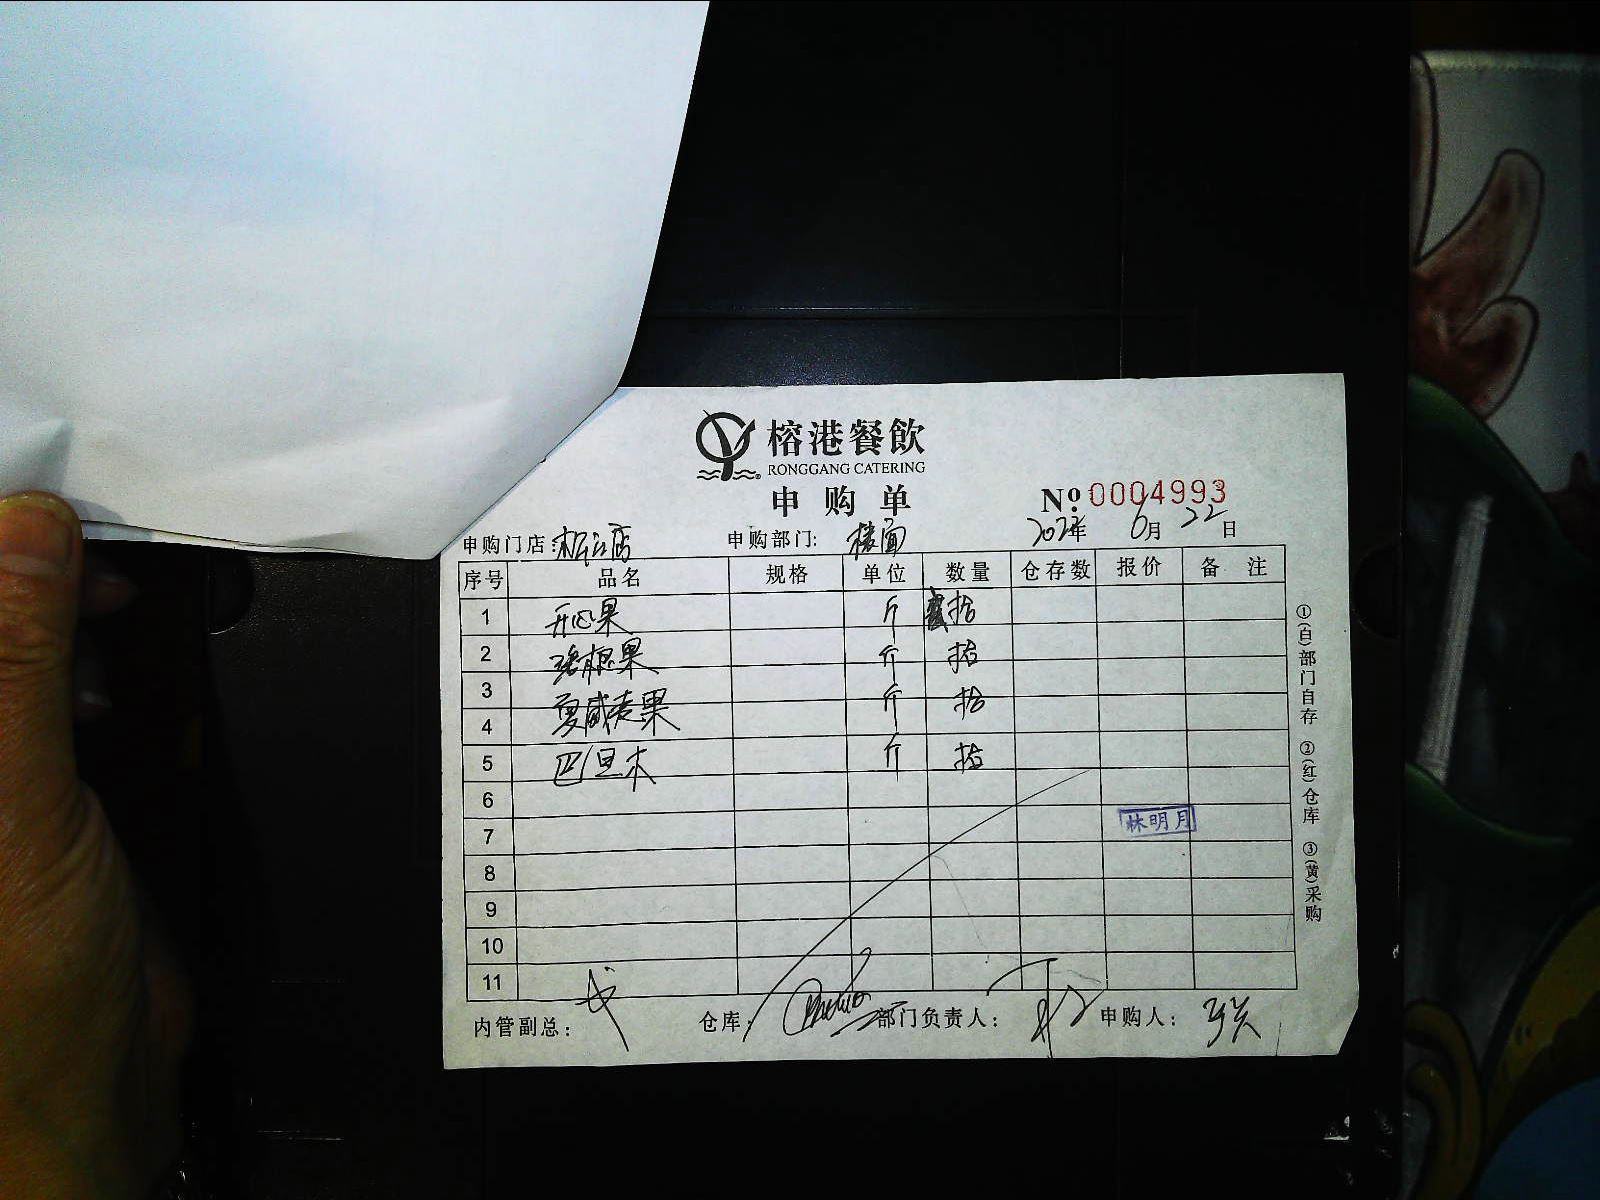 榕港餐飲
RONGGANG CATERING
申购单
№ 0004993
申购门店: 松江店 申购部门: 楼面 2022年 6月 22日
序号 品名 规格 单位 数量 仓存数 报价 备注
1 开心果 斤 拾
2 碧根果 斤 拾
3 夏威夷果 斤 拾
4
5 巴旦木 斤 拾
6
7 林明月
8
9
10
11
内管副总: 仓库: 部门负责人: 申购人:
①(白)部门自存 ②(红)仓库 ③(黄)采购